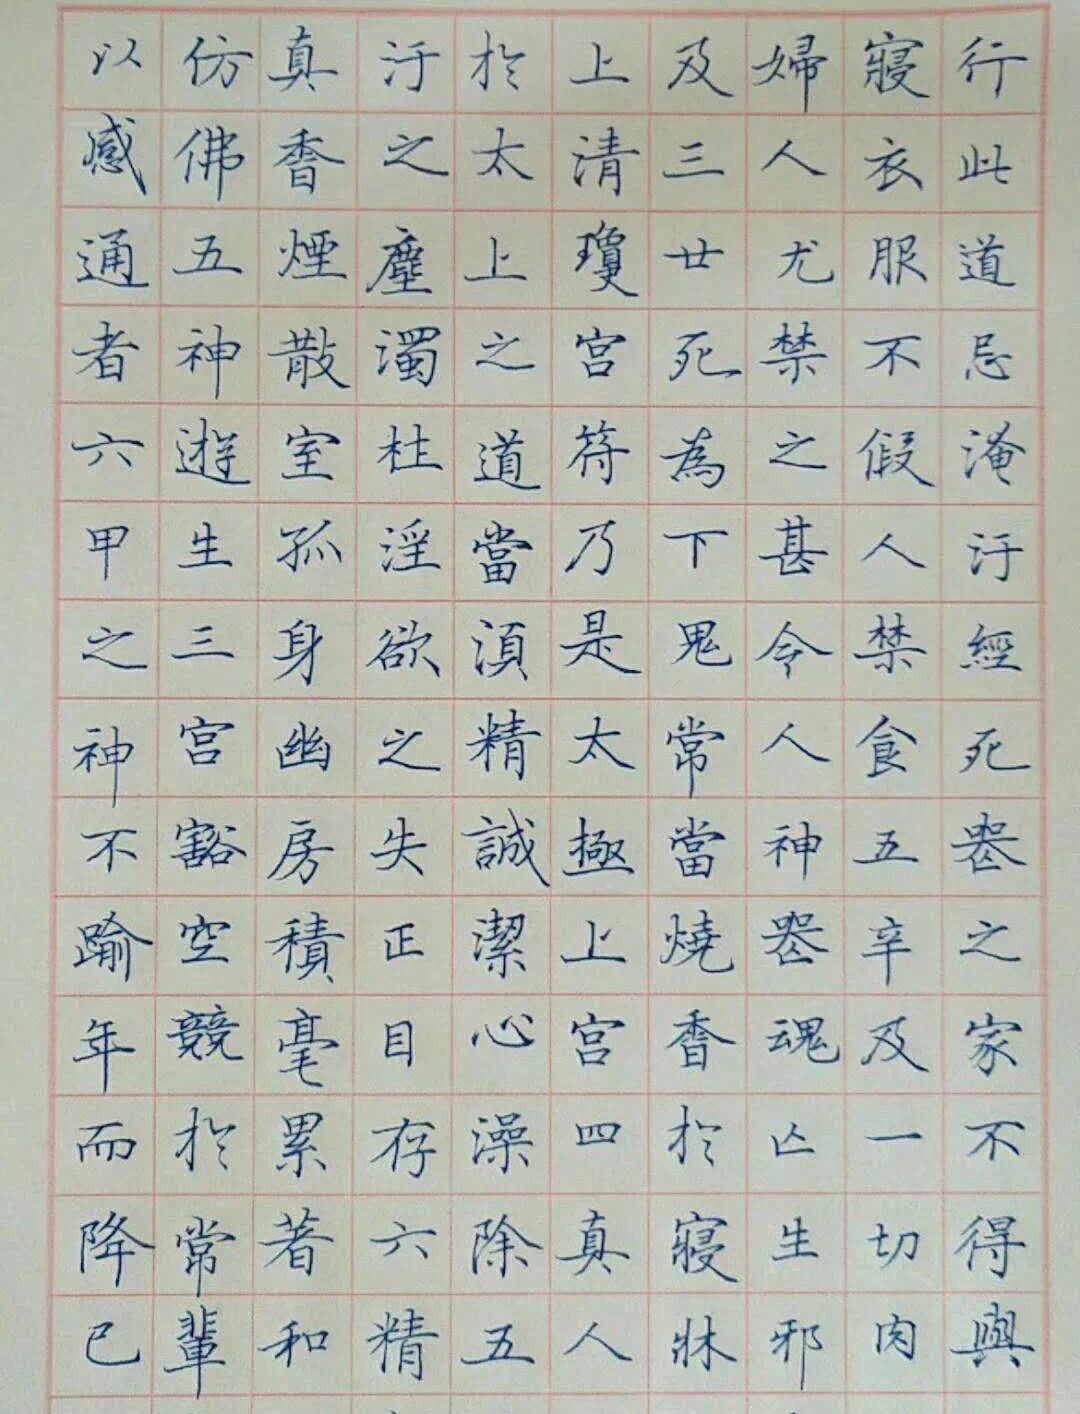 行此道忌淹汙經死喪之家不得與
寢衣服不假人禁食五辛及一切肉
婦人尤禁之甚令人神喪魂亡生邪
及三世死為下鬼常當燒香於寢牀
上清瓊宮符乃是太極上宮四真人
於太上之道當須精誠潔心澡除五
汙之塵濁杜淫欲之失正目存六精
真香煙散室孤身幽房積毫累著和
仿佛五神遊生三宮豁空競於常輩
以感通者六甲之神不踰年而降已